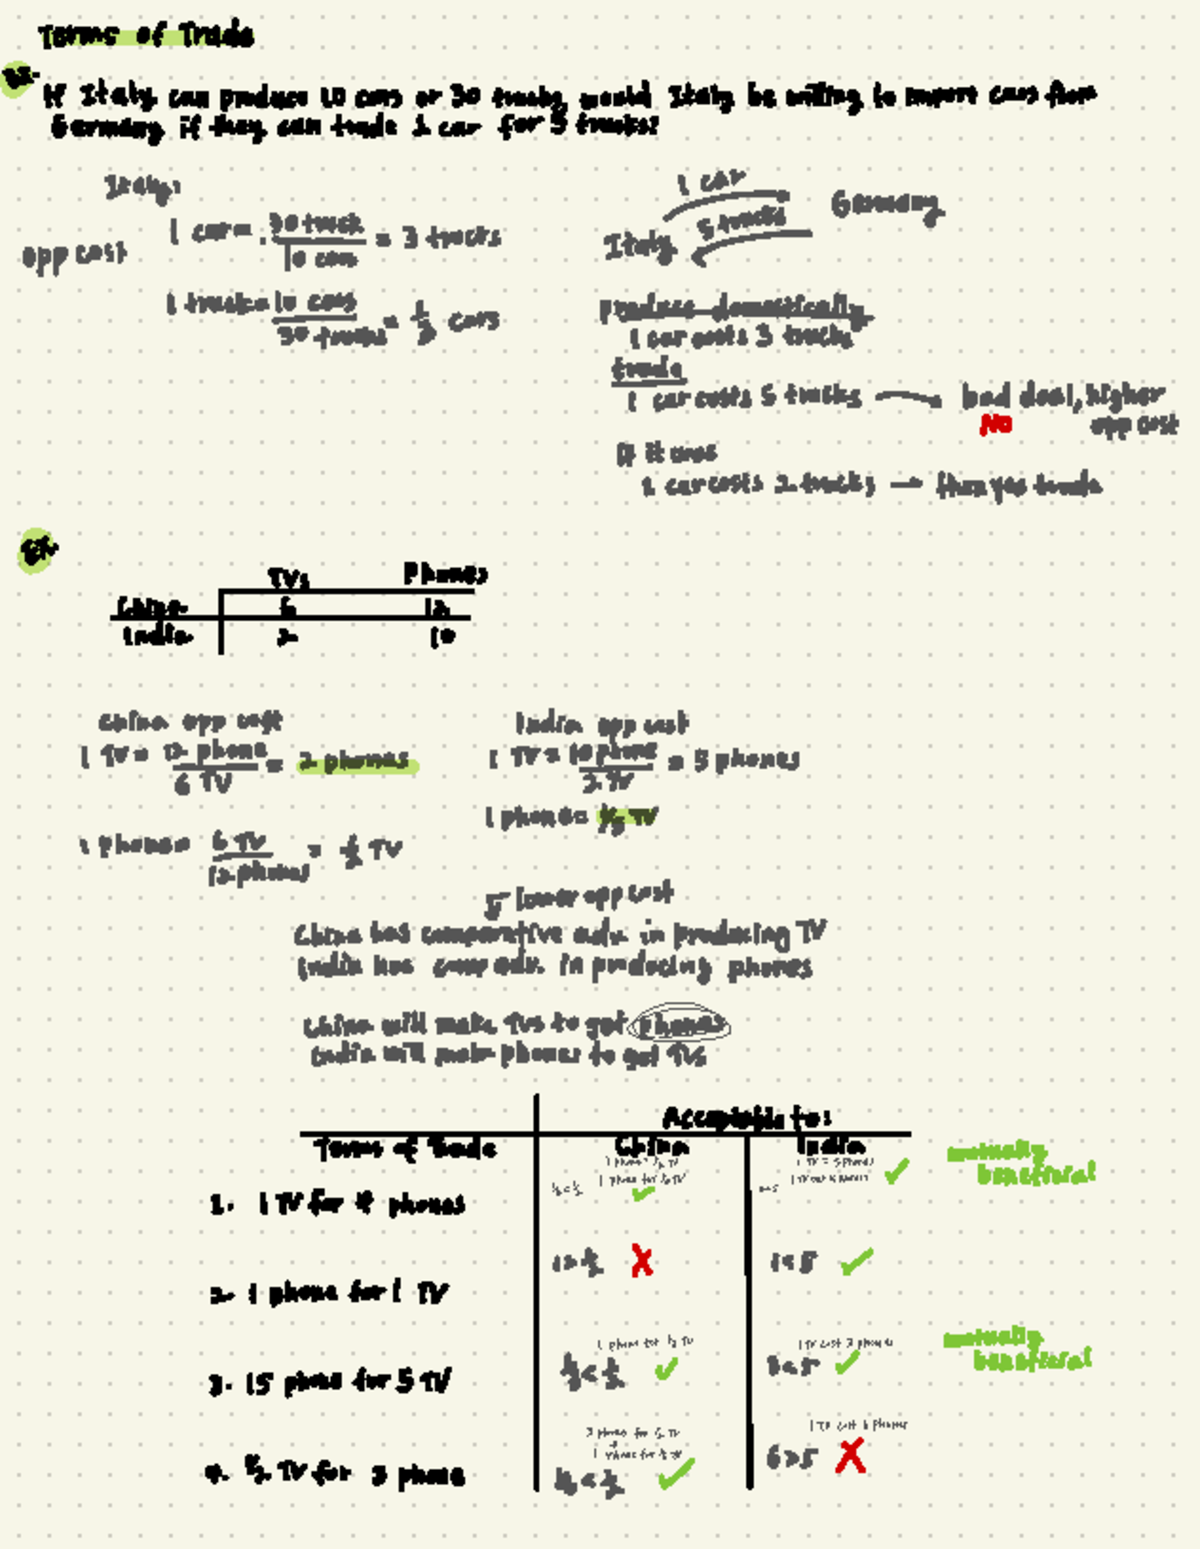 Terms of Trade
Ex.
If Italy can produce 10 cars or 30 trucks, would Italy be willing to import cars from
Germany if they can trade 1 car for 5 trucks?
Italy:
opp cost
1 car = 30 truck / 10 cars = 3 trucks
1 truck = 10 cars / 30 trucks = 1/3 cars
1 car
Italy 5 trucks Germany
Produce domestically
1 car costs 3 trucks
trade
1 car costs 5 trucks → bad deal, higher
NO opp cost
If it was
1 car costs 2 trucks → then yes trade
Ex.
TVs Phones
China 6 12
India 2 10
China opp cost
1 TV = 12 phone / 6 TV = 2 phones
1 phone = 6 TV / 12 phones = 1/2 TV
India opp cost
1 TV = 10 phone / 2 TV = 5 phones
1 phone = 1/5 TV
lower opp cost
China has comparative adv. in producing TV
India has comp adv. in producing phones
China will make TVs to get phones
India will make phones to get TVs
Acceptable to:
Terms of Trade China India
1 phone = 1/2 TV 1 TV = 5 phones
1 phone for 1/4 TV 1 TV cost 4 phones
1/4 < 1/2 ✓ 4<5 ✓
1. 1 TV for 4 phones
mutually
beneficial
1 > 1/2 X 1 < 5 ✓
2. 1 phone for 1 TV
1 phone for 1/3 TV 1 TV cost 3 phones
3. 15 phone for 5 TV 1/3 < 1/2 ✓ 3 < 5 ✓
mutually
beneficial
3 phone for 1/2 TV 1 TV cost 6 phones
6 > 5 X
4. 1/2 TV for 3 phone < 1/2 ✓